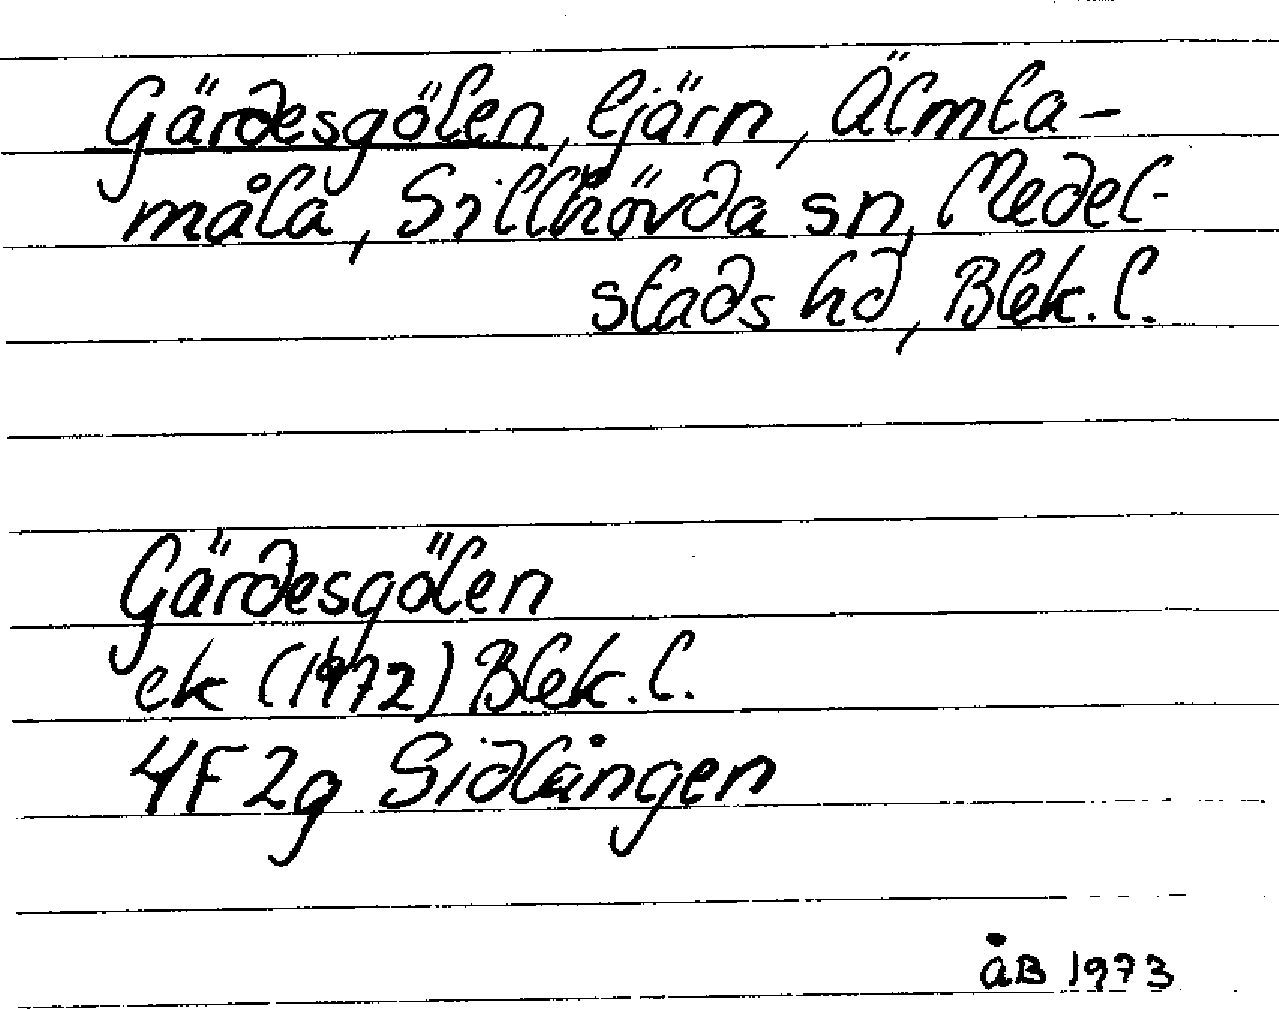 Gärdesgölen, tjärn, Älmta-
måla, Sillhövda sn, Medel-
stads hd, Blek. l.
Gärdesgölen
ek (1972) Blek. l.
4F2g Sidlången
åB 1973